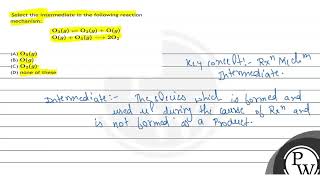 Select the intermediate in the following reaction
mechanism:
O₃(g) → O₂(g) + O(g)
O(g) + O₃(g) → 2O₂
(A) O₃(g)
(B) O(g)
(C) O₂(g)
(D) none of these
Key concept:- Rxⁿ Mechm
Intermediate.
Intermediate :- The species which is formed and
used up during the cause of Rxⁿ and
is not formed as a Product.
PW